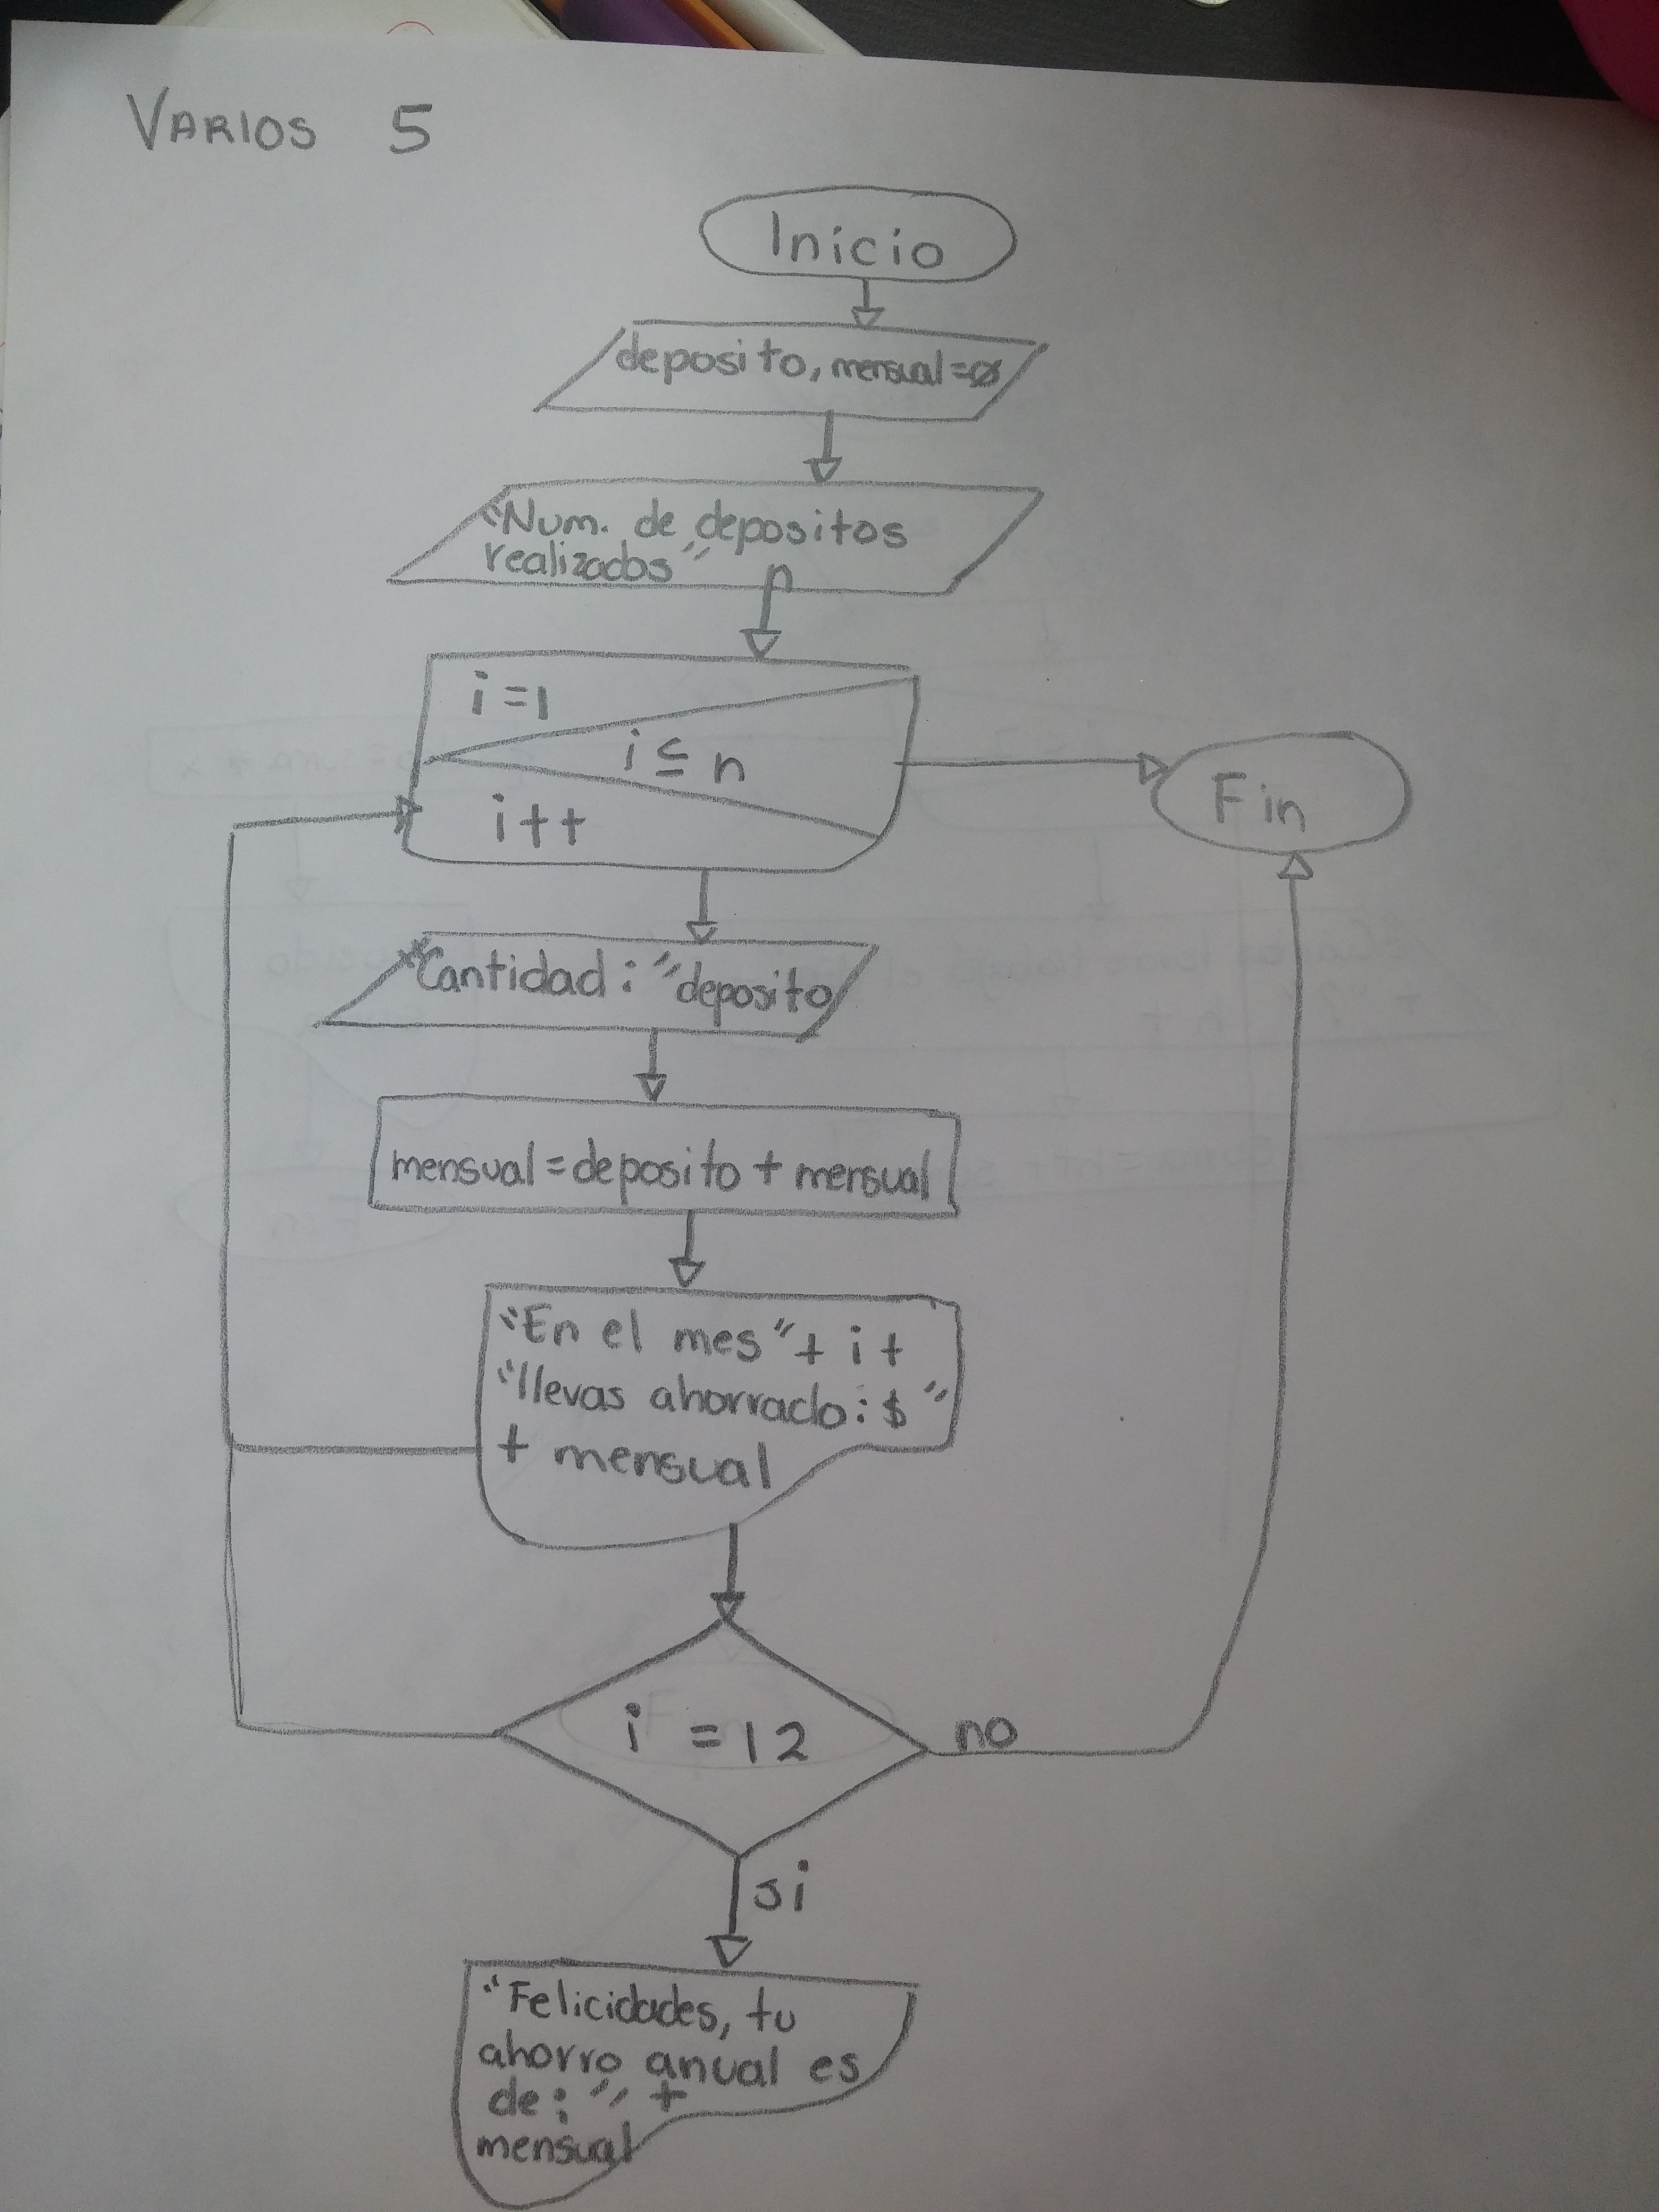 VARIOS 5
Inicio
deposito, mensual=Ø
"Num. de depositos
realizados" n
i=1
i≤n
i++
Fin
"Cantidad:" deposito
mensual=deposito + mensual
"En el mes" + i +
"llevas ahorrado: $"
+ mensual
i =12
no
si
"Felicidades, tu
ahorro anual es
de:" +
mensual